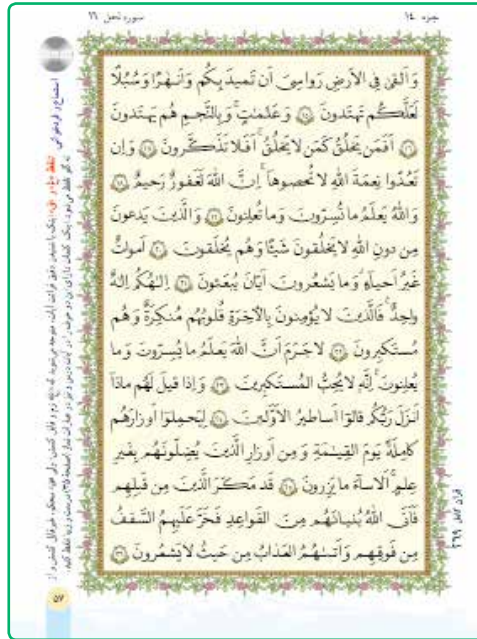 جزء ۱۴
سوره نحل ۱۶
وَ اَلقىٰ فِى الاَرضِ رَواسِىَ اَن تَميدَ بِكُم وَ اَنهٰرًا وَ سُبُلًا
لَعَلَّكُم تَهتَدونَ ۱۵ وَ عَلٰمٰتٍ وَ بِالنَّجمِ هُم يَهتَدونَ
۱۶ اَفَمَن يَخلُقُ كَمَن لا يَخلُقُ اَفَلا تَذَكَّرونَ ۱۷ وَ اِن
تَعُدّوا نِعمَةَ اللهِ لا تُحصوها اِنَّ اللهَ لَغَفورٌ رَحيمٌ ۱۸
وَ اللهُ يَعلَمُ ما تُسِرّونَ وَ ما تُعلِنونَ ۱۹ وَ الَّذينَ يَدعونَ
مِن دونِ اللهِ لا يَخلُقونَ شَيئًا وَ هُم يُخلَقونَ ۲۰ اَمواتٌ
غَيرُ اَحياءٍ وَ ما يَشعُرونَ اَيّانَ يُبعَثونَ ۲۱ اِلٰهُكُم اِلٰهٌ
واحِدٌ فَالَّذينَ لا يُؤمِنونَ بِالآخِرَةِ قُلوبُهُم مُنكِرَةٌ وَ هُم
مُستَكبِرونَ ۲۲ لا جَرَمَ اَنَّ اللهَ يَعلَمُ ما يُسِرّونَ وَ ما
يُعلِنونَ اِنَّهُ لا يُحِبُّ المُستَكبِرينَ ۲۳ وَ اِذا قيلَ لَهُم ماذا
اَنزَلَ رَبُّكُم قالوا اَساطيرُ الاَوَّلينَ ۲۴ لِيَحمِلوا اَوزارَهُم
كامِلَةً يَومَ القِيٰمَةِ وَ مِن اَوزارِ الَّذينَ يُضِلّونَهُم بِغَيرِ
عِلمٍ اَلا ساءَ ما يَزِرونَ ۲۵ قَد مَكَرَ الَّذينَ مِن قَبلِهِم
فَاَتَى اللهُ بُنيانَهُم مِنَ القَواعِدِ فَخَرَّ عَلَيهِمُ السَّقفُ
مِن فَوقِهِم وَ اَتىٰهُمُ العَذابُ مِن حَيثُ لا يَشعُرونَ ۲۶
قرآن کامل ۲۶۹
۵۷